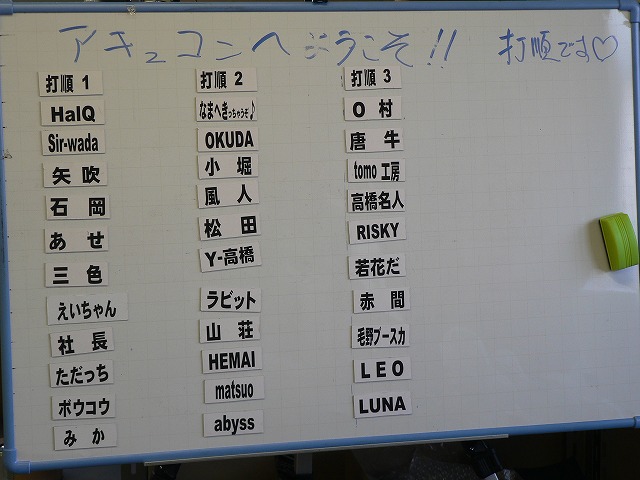 アキュコンへようこそ!! 打順です♡
打順 1
HalQ
Sir-wada
矢吹
石岡
あせ
三色
えいちゃん
社長
ただっち
ボウコウ
みか
打順 2
なまへきっちゃうぞ♪
OKUDA
小堀
風人
松田
Y-高橋
ラビット
山荘
HEMAI
matsuo
abyss
打順 3
O村
唐牛
tomo工房
高橋名人
RISKY
若花だ
赤間
毛野ブースカ
LEO
LUNA